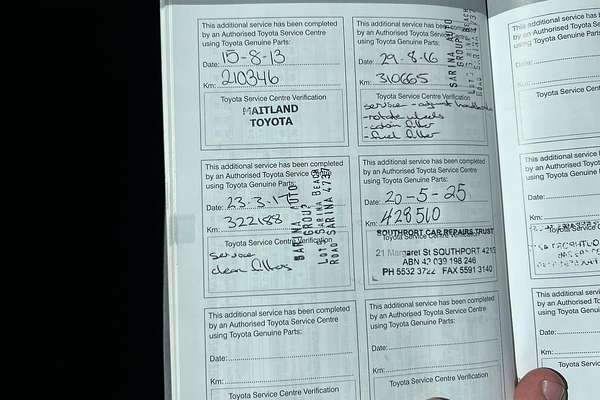 This additional service has been completed
by an Authorised Toyota Service Centre
using Toyota Genuine Parts:
Date: 15-8-13
Km: 210346
Toyota Service Centre Verification
MAITLAND
TOYOTA
This additional service has been completed
by an Authorised Toyota Service Centre
using Toyota Genuine Parts:
Date: 29-8-16
Km: 310665
Toyota Service Centre Verification
service - adjust
- rotate wheels
- cabin filter
- fuel filter
SARINA AUTO
GROUP
ROAD SARINA 4737
This additional service has been completed
by an Authorised Toyota Service Centre
using Toyota Genuine Parts:
Date: 23-3-17
Km: 322188
Toyota Service Centre Verification
service
clean filters
SARINA AUTO
GROUP
Lot 6 SARINA BEACH
ROAD SARINA 4737
This additional service has been completed
by an Authorised Toyota Service Centre
using Toyota Genuine Parts:
Date: 20-5-25
Km: 428510
SOUTHPORT CAR REPAIRS TRUST
Toyota Service Centre Verification
21 Margaret St SOUTHPORT 4215
ABN 42 039 198 246
PH 5532 3722 FAX 5591 3140
This additional service has been completed
by an Authorised Toyota Service Centre
using Toyota Genuine Parts:
Date:
Km:
Toyota Service Centre Verification
This additional service has been completed
by an Authorised Toyota Service Centre
using Toyota Genuine Parts:
Date:
Km:
Toyota Service Centre Verification
This additional service has
by an Authorised Toyota
using Toyota Genuine Parts:
Date:
Km:
Toyota Service
This additional service has
by an Authorised Toyota
using Toyota Genuine
Date:
Km:
Toyota Service
This additional service has
by an Authorised Toyota
using Toyota Genuine
Date:
Km:
Toyota Service